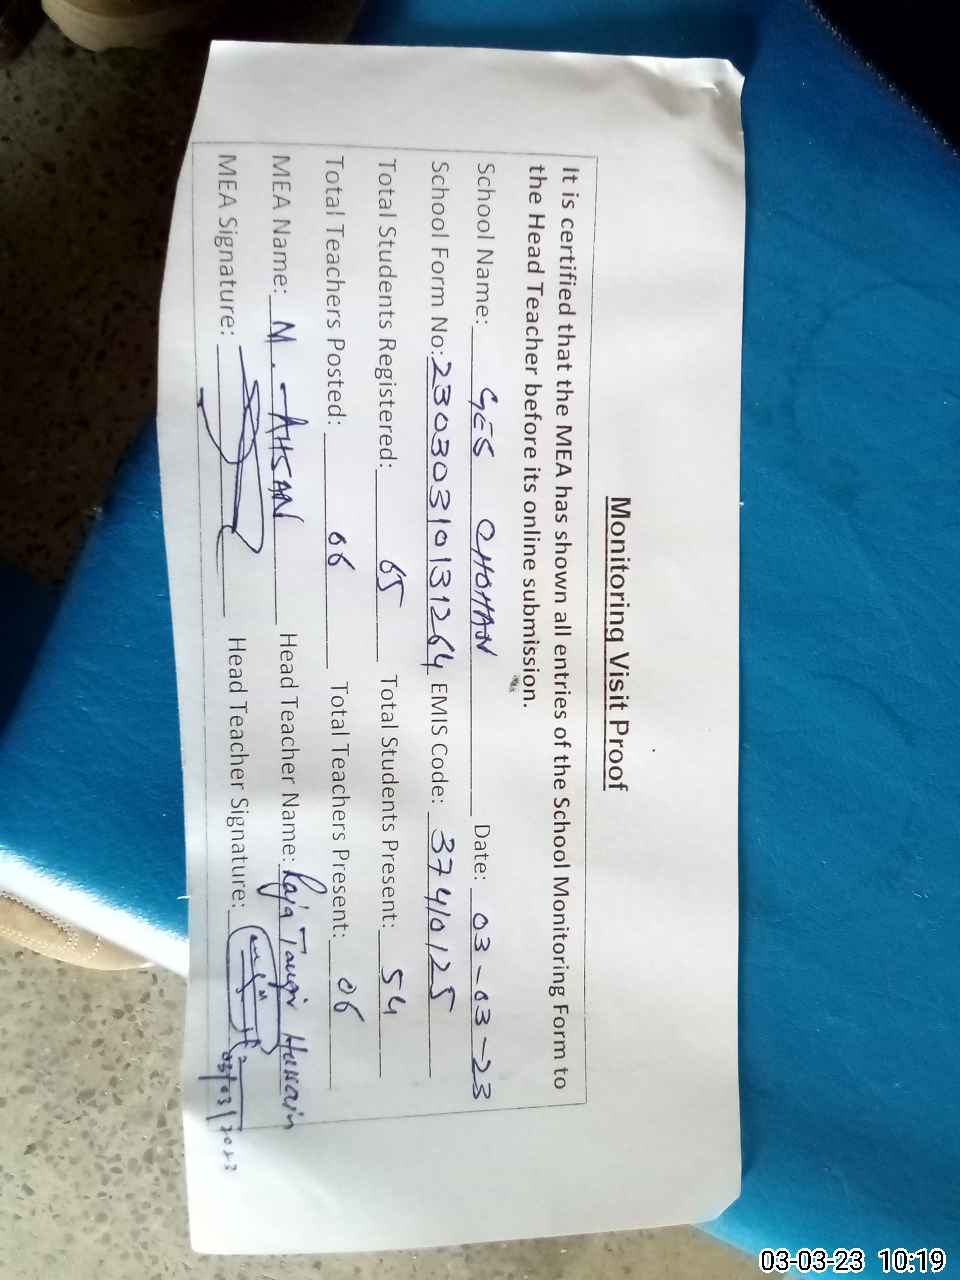 Monitoring Visit Proof
It is certified that the MEA has shown all entries of the School Monitoring Form to
the Head Teacher before its online submission.
School Name: GES CHOHAN Date: 03-03-23
School Form No: 23030310131264 EMIS Code: 37410125
Total Students Registered: 65 Total Students Present: 54
Total Teachers Posted: 06 Total Teachers Present: 06
MEA Name: M. AHSAN Head Teacher Name: Raja Hussain
MEA Signature: Head Teacher Signature:
03/03/2023
03-03-23 10:19